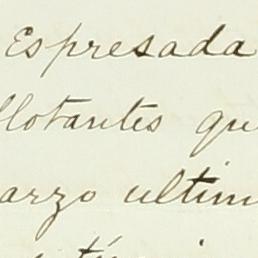 Espresada
llotantes qu
arzo ultim